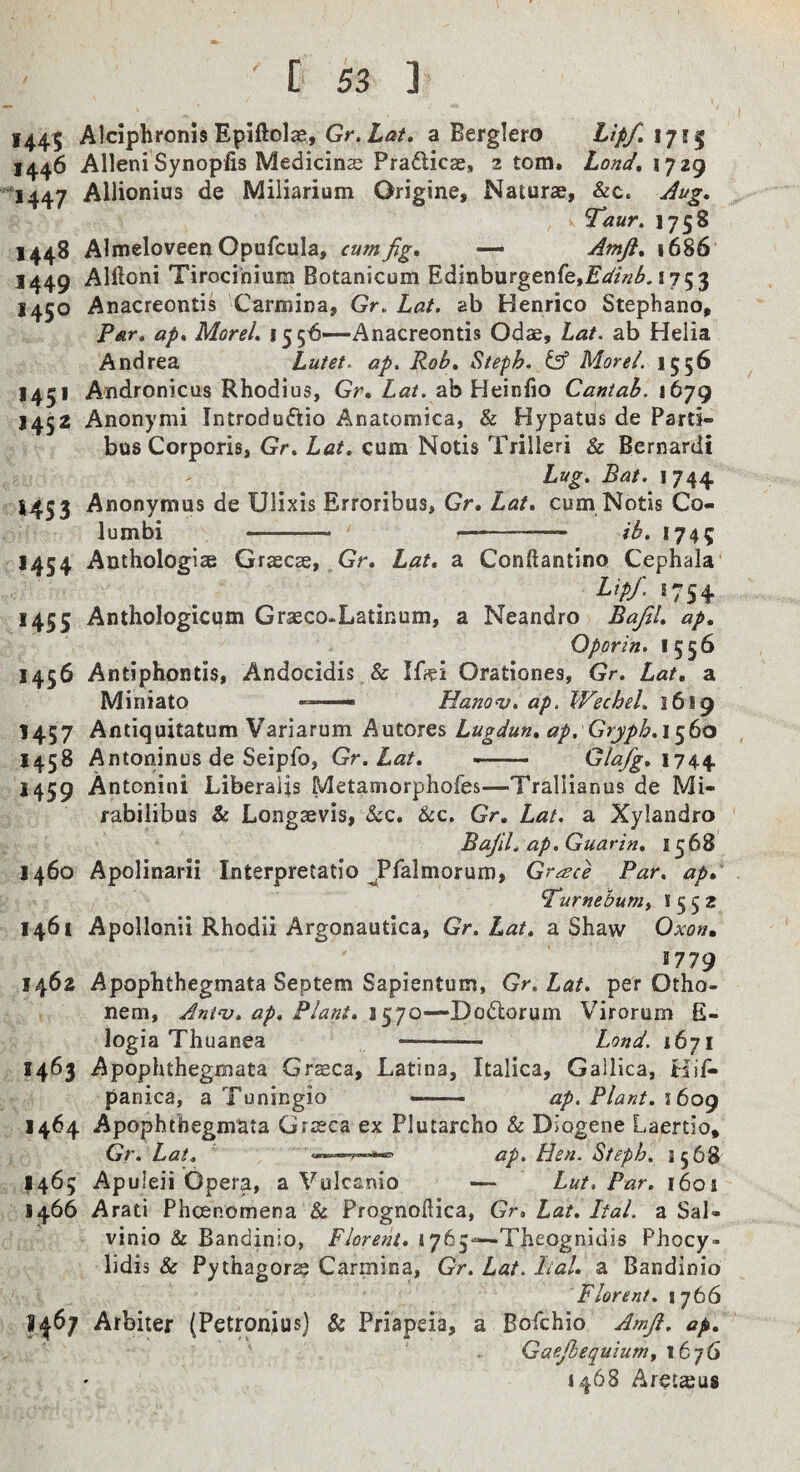 [ 53 ]
1445 Alciphronis Epiſtolæ, Gr. Lat. a Berglero Lipſ. 1715
1446 Alleni Synopſis Medicinæ Practicæ, 2 tom. Lond. 1729
1447 Allionius de Miliarium Origine, Naturæ, &c. Aug.
Taur. 1758
1448 Almeloveen Opuſcula, cum fig. — Amſt. 1686
1449 Alſtoni Tirocinium Botanicum Edinburgenſe, Edinb. 1753
1450 Anacreontis Carmina, Gr. Lat. ab Henrico Stephano,
Par. ap. Morel. 1556—Anacreontis Odæ, Lat. ab Helia
Andrea Lutet. ap. Rob. Steph. & Morel. 1556
1451 Andronicus Rhodius, Gr. Lat. ab Heinſio Cantab. 1679
1452 Anonymi Introductio Anatomica, & Hypatus de Parti-
bus Corporis, Gr. Lat. cum Notis Trilleri & Bernardi
Lug. Bat. 1744
1453 Anonymus de Ulixis Erroribus, Gr. Lat. cum Notis Co-
lumbi —— —— ib. 1745
1454 Anthologiæ Græcæ, Gr. Lat. a Conſtantino Cephala
Lipſ. 1754
1455 Anthologicum Græco-Latinum, a Neandro Baſil. ap.
Oporin. 1556
1456 Antiphontis, Andocidis & Iſæi Orationes, Gr. Lat. a
Miniato —— Hanov. ap. Wechel. 1619
1457 Antiquitatum Variarum Autores Lugdun. ap. Gryph. 1560
1458 Antoninus de Seipſo, Gr. Lat. —— Glaſg. 1744
1459 Antonini Liberalis Metamorphoſes—Trallianus de Mi-
rabilibus & Longævis, &c. &c. Gr. Lat. a Xylandro
Baſil. ap. Guarin. 1568
1460 Apolinarii Interpretatio Pſalmorum, Græcè Par. ap.
Turnebum, 1552
1461 Apollonii Rhodii Argonautica, Gr. Lat. a Shaw Oxon.
1779
1462 Apophthegmata Septem Sapientum, Gr. Lat. per Otho-
nem, Antv. ap. Plant. 1570—Doctorum Virorum E-
logia Thuanea —— Lond. 1671
1463 Apophthegmata Græca, Latina, Italica, Gallica, Hiſ-
panica, a Tuningio —— ap. Plant. 1609
1464 Apophthegmata Græca ex Plutarcho & Diogene Laertio,
Gr. Lat. —— ap. Hen. Steph. 1568
1465 Apuleii Opera, a Vulcanio — Lut. Par. 1601
1466 Arati Phœnomena & Prognoſtica, Gr. Lat. Ital. a Sal-
vinio & Bandinio, Florent. 1765—Theognidis Phocy-
lidis & Pythagoræ Carmina, Gr. Lat. Ital. a Bandinio
Florent. 1766
1467 Arbiter (Petronius) & Priapeia, a Boſchio Amſt. ap.
Gaeſbequium, 1676
1468 Aretæus